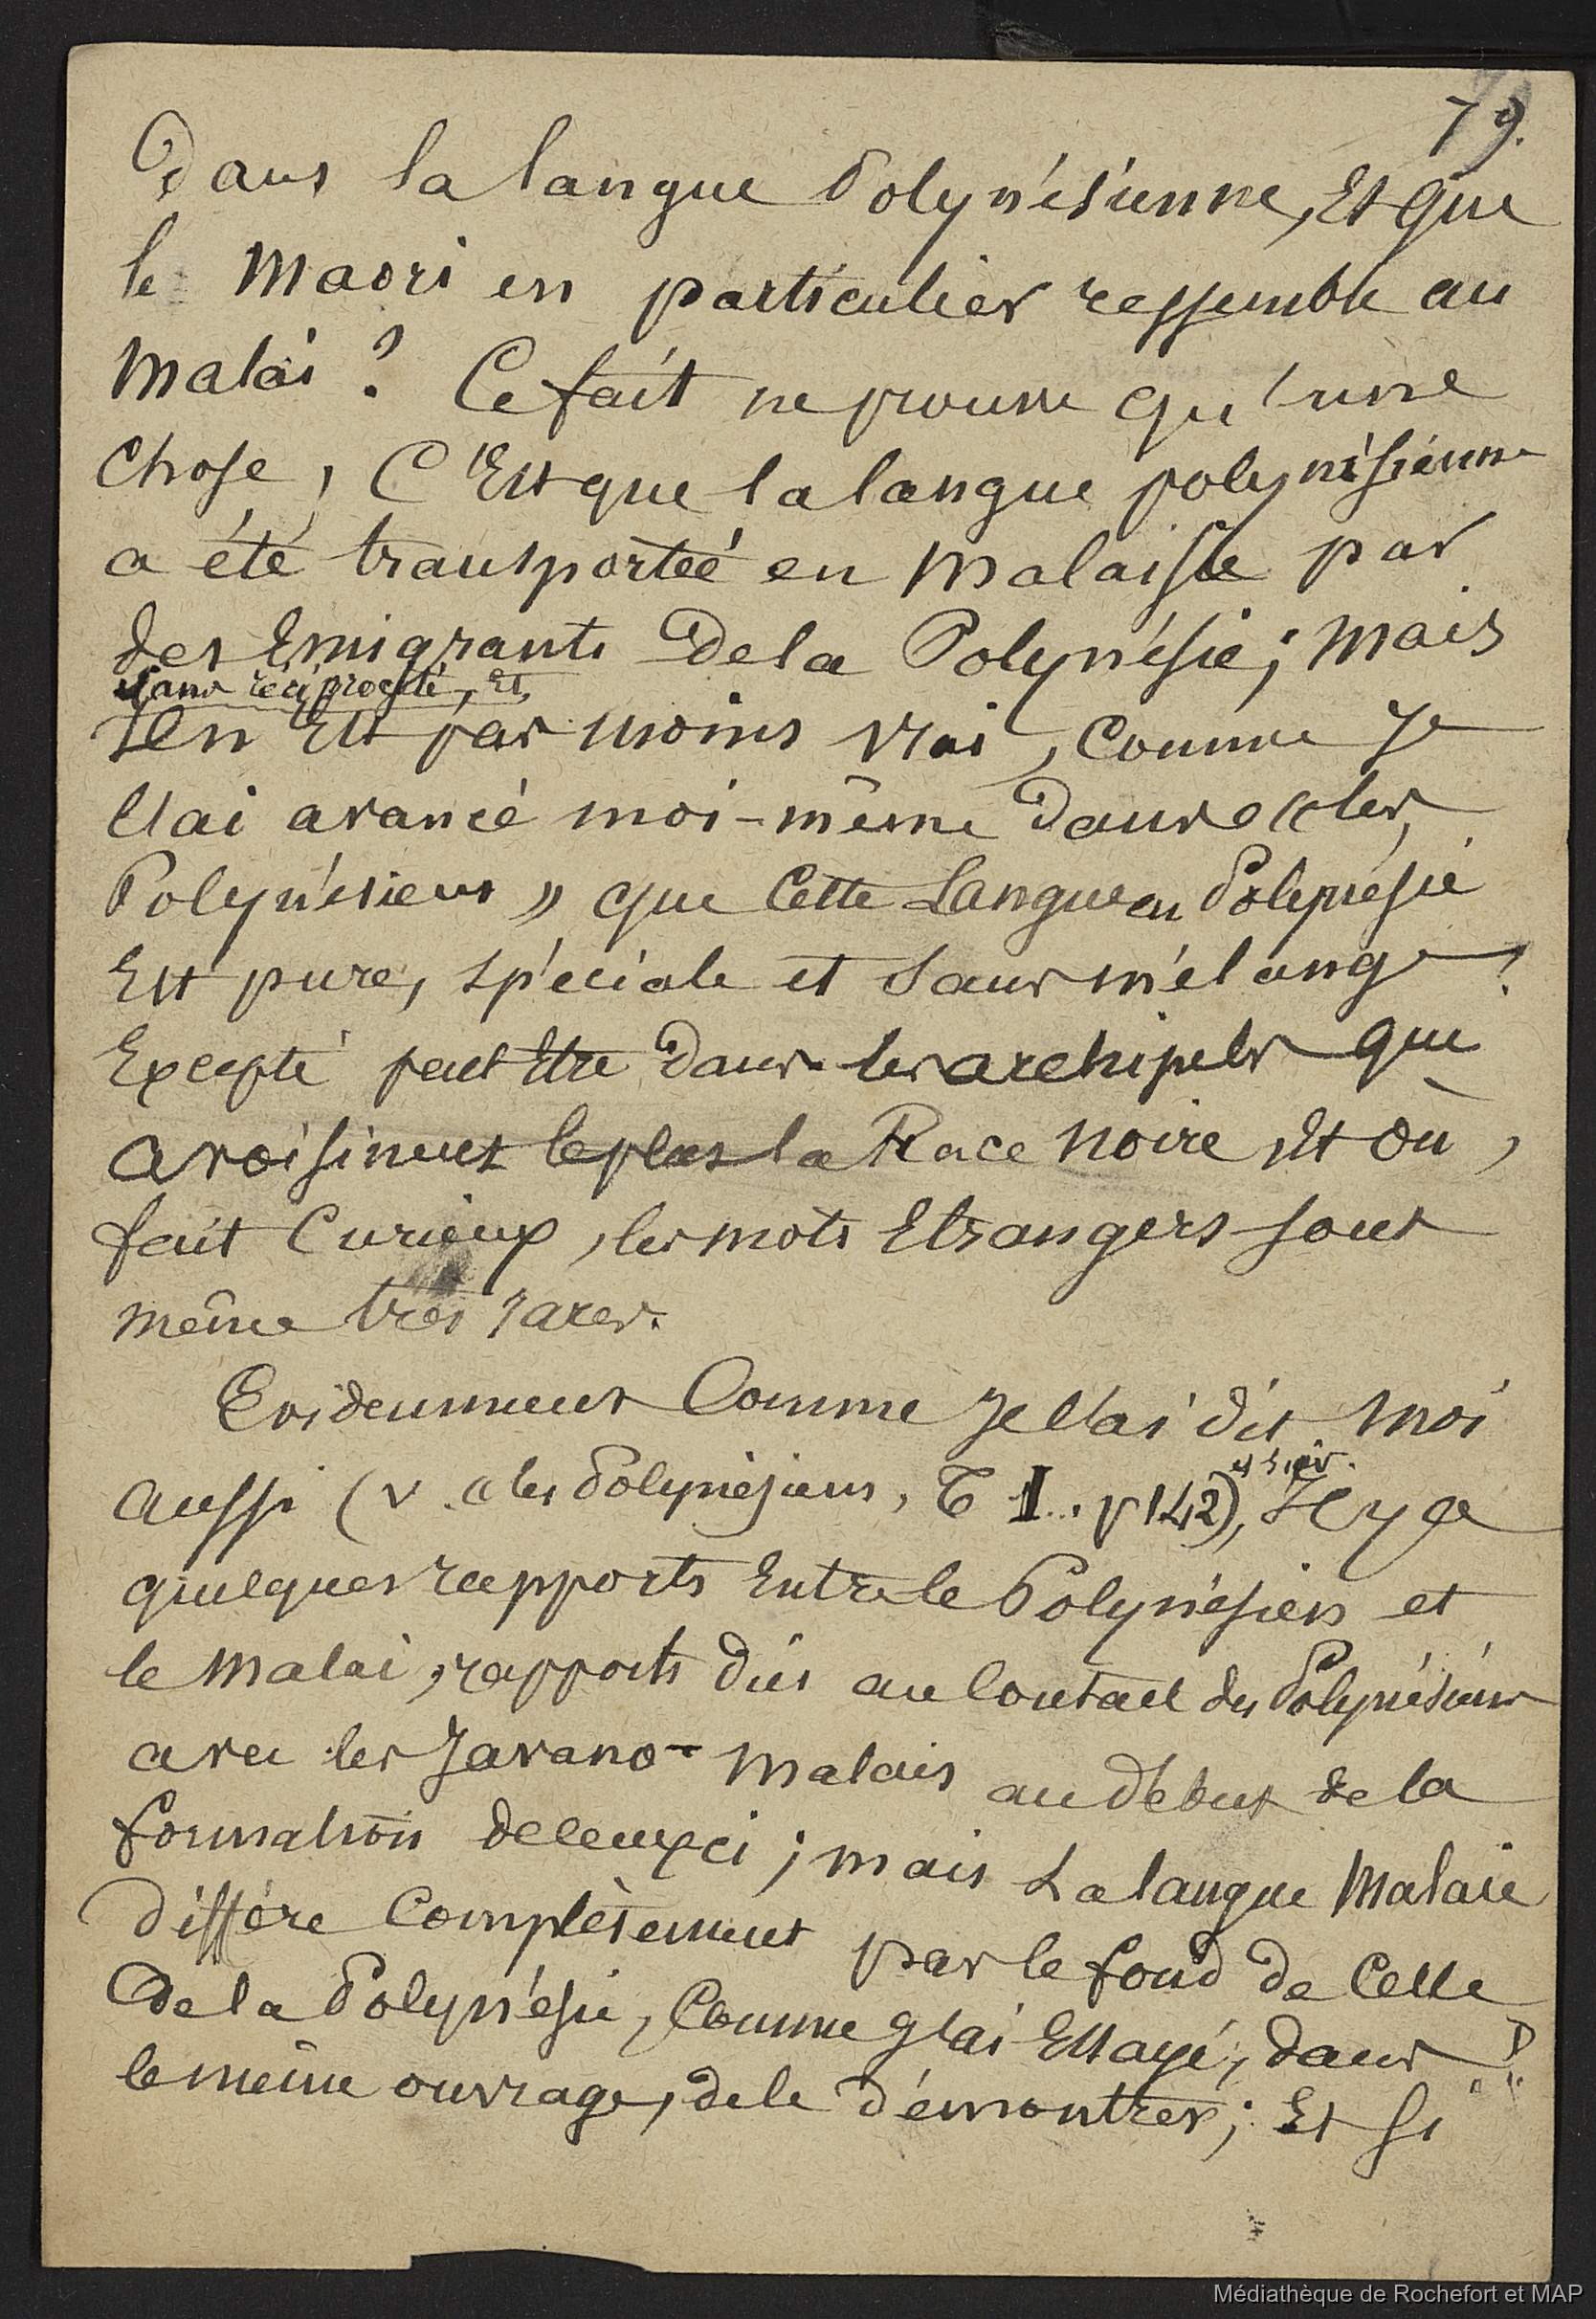 79.
Dans la langue Polynésienne, Et que
le Maori en particulier ressemble au
Malai ? Ce fait ne prouve qu'une
Chose, C'Est que la langue polynésienne
a été transportée en Malaisie par
des Emigrants De la Polynésie; Mais
sans réciprocité, Et
Il en Est pas moins vrai, Comme Je
l'ai avancé moi-même Dans « les
Polynésiens » que Cette Langue en Polynésie
Est pure, spéciale et sans mélange ?
Excepté peut Etre Dans les archipels qui
avoisinent le plus la Race Noire, Et où,
fait Curieux, les mots Etrangers sont
même très rares.
Evidemment Comme Je l'ai dit moi
aussi (v. « les Polynésiens, T I.. p 142), Il y a
et suiv.
quelques rapports Entre le Polynésien et
le Malai, rapports dûs au Contact des Polynésiens
avec les Javano-Malais au début de la
formation de ceux ci ; mais La langue Malaie
Diffère Complètement par le fond de Celle
De la Polynésie, Comme j'ai Essayé, dans
le même ouvrage, de le démontrer; Et Si
Médiathèque de Rochefort et MAP